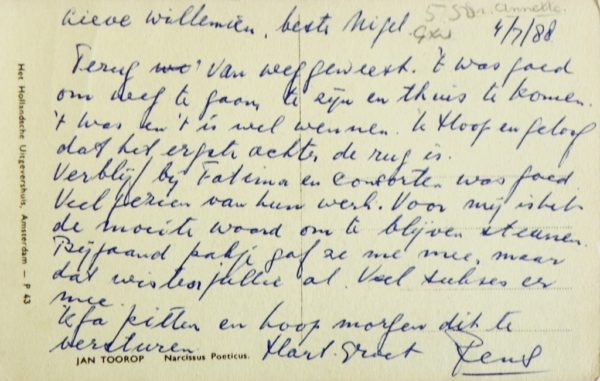 Lieve Willemien, beste Nigel.
4/7/88
Terug van weggeweest. 't was goed
om weg te gaan, te zijn en thuis te komen.
't was en 't is wel wennen. Ik hoop en geloof
dat het ergste achter de rug is.
Verblijf bij Fatima en consorten was goed.
Veel gezien van hun werk. Voor mij is het
de moeite waard om te blijven steunen.
Bijgaand pakje gaf ze me mee, maar
dat wisten jullie al. Veel sukses er
mee.
Ik ga pitten en hoop morgen dit te
versturen. Hart. Groet
JAN TOOROP Narcissus Poeticus.
Het Hollandsche Uitgevershuis, Amsterdam — P 43